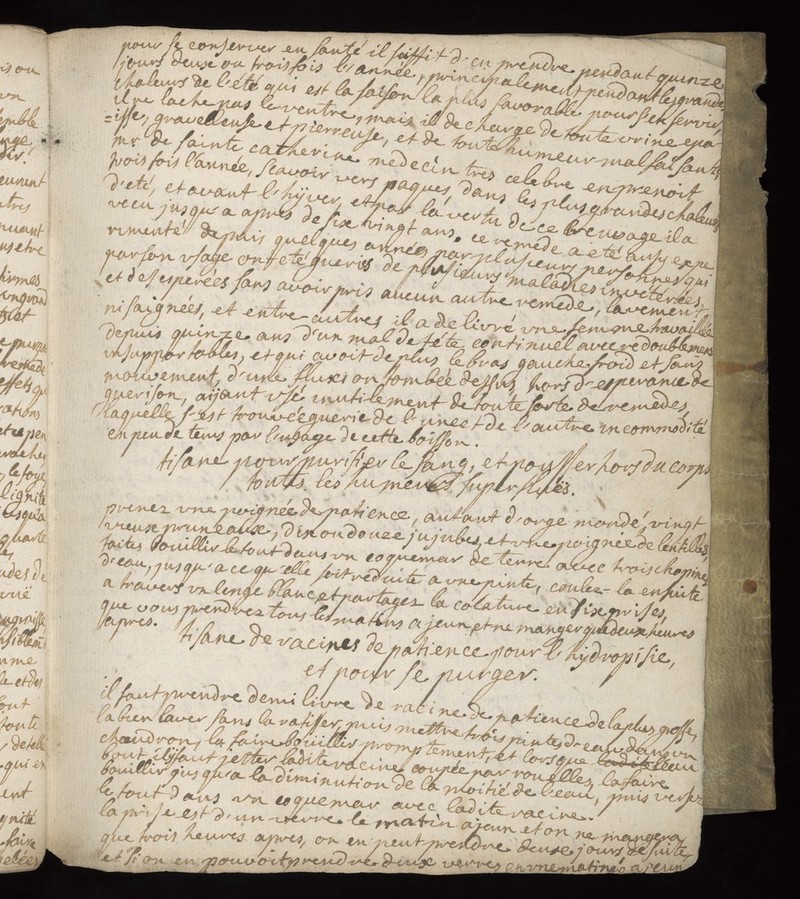 pour se conserver en santé il suffit d'en prendre pendant quinze
jours deux ou trois fois l'année, principalement pendant les grandes
chaleurs de l'été qui est la saison la plus favorable pour s'en servir,
il ne lache pas le ventre, mais il decharge de toute urine epa-
=isse, graveleuse et pierreuse, et de toute humeur mal faisante,
mr. de sainte catherine medecin tres celebre en prenoit
trois fois l'année, scavoir vers paques, dans les plus grandes chaleurs
d'eté, et avant l'hyver, et par la vertu de ce breuvage il a
vecu jusqu'a apres de six vingt ans. ce remede a eté aussy expe-
rimenté depuis quelques années par plusieurs personnes qui
par son usage ont eté gueris de plusieurs maladies inveterées,
et desesperées sans avoir pris aucun autre remede, lavement,
ni saignées, et entre autres il a delivré une femme travaillée
depuis quinze ans d'un mal de téte continuel avec redoublemens
insupportables, et qui avoit de plus le bras gauche froid et sans
mouvement, d'une fluxion tombée dessus hors d'esperance de
guerison, aijant usé inutilement de toute sorte de remedes,
laquelle s'est trouvée guerie de l'une et de l'autre incommodité
en peu de tems par l'usage de cette boisson.
tisane pour purifier le sang, et pousser hors du corps
toutes les humeurs superflues.
prenez une poignée de patience, autant d'orge mondé, vingt
vieux pruneaux, dix ou douze jujubes, et une poignée de lentilles,
faites bouillir le tout dans un coquemar de terre avec trois chopines
d'eau, jusqu'a ce qu'elle soit reduite a une pinte, coulez-la ensuite
a travers un linge blanc et partagez la colature en six prises,
que vous prendrez tous les matins a jeun et ne manger que deux heures
apres.
tisane de racines de patience pour l'hijdropisie,
et pour se purger.
il faut prendre demi livre de racine de patience de la plus grosse,
la bien laver sans la ratisser, puis mettre trois pintes d'eau dans un
chaudron, la faire boüillir promptement, et lorsque ladite l'eau
bout il faut jetter ladite racine coupée par rouelles, la faire
bouillir jusqu'a la diminution de la moitié de l'eau, puis versez
le tout dans un coquemar avec ladite racine.
la prise est d'un verre le matin a jeun et on ne mangera
que trois heures apres, on en peut prendre deux jours de suite
et si on en pouvoit prendre deux verres en une matinée a jeun